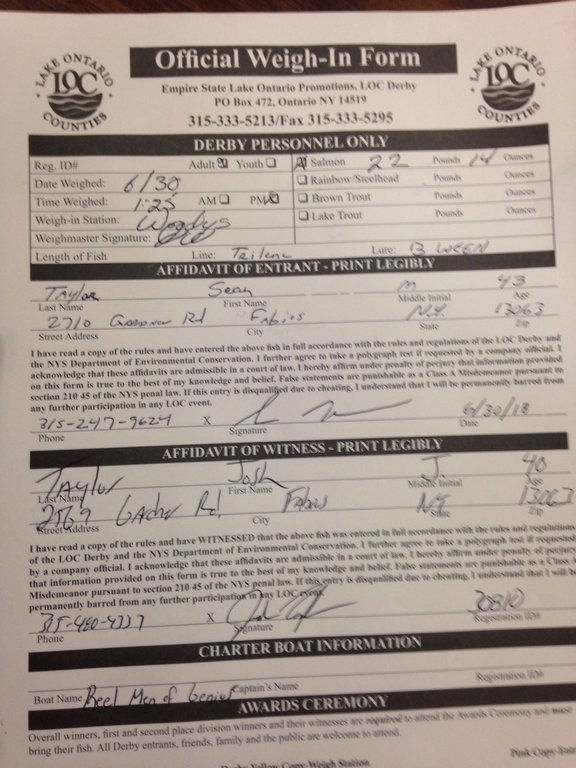 Official Weigh-In Form
LAKE ONTARIO LOC COUNTIES
LAKE ONTARIO LOC COUNTIES
Empire State Lake Ontario Promotions, LOC Derby
PO Box 472, Ontario NY 14519
315-333-5213/Fax 315-333-5295
DERBY PERSONNEL ONLY
Reg. ID# Adult Youth Salmon 22 Pounds 14 Ounces
Date Weighed: 6/30 Rainbow/Steelhead Pounds Ounces
Time Weighed: 1:25 AM PM Brown Trout Pounds Ounces
Weigh-in Station: Woodys Lake Trout Pounds Ounces
Weighmaster Signature:
Length of Fish Line: Trilene Lure: B WEEN
AFFIDAVIT OF ENTRANT - PRINT LEGIBLY
Taylor Sean M 43
Last Name First Name Middle Initial Age
2710 Rd Fabius N.Y. 13063
Street Address City State Zip
I have read a copy of the rules and have entered the above fish in full accordance with the rules and regulations of the LOC Derby and
the NYS Department of Environmental Conservation. I further agree to take a polygraph test if requested by a company official. I
acknowledge that these affidavits are admissible in a court of law. I hereby affirm under penalty of perjury that information provided
on this form is true to the best of my knowledge and belief. False statements are punishable as a Class A Misdemeanor pursuant to
section 210 45 of the NYS penal law. If this entry is disqualified due to cheating, I understand that I will be permanently barred from
any further participation in any LOC event.
315-247-9624 X 6/30/18
Phone Signature Date
AFFIDAVIT OF WITNESS - PRINT LEGIBLY
Taylor Josh J. 40
Last Name First Name Middle Initial Age
2569 Rd. Fabius NY 13063
Street Address City State Zip
I have read a copy of the rules and have WITNESSED that the above fish was entered in full accordance with the rules and regulations
of the LOC Derby and the NYS Department of Environmental Conservation. I further agree to take a polygraph test if requested
by a company official. I acknowledge that these affidavits are admissible in a court of law. I hereby affirm under penalty of perjury
that information provided on this form is true to the best of my knowledge and belief. False statements are punishable as a Class A
Misdemeanor pursuant to section 210 45 of the NYS penal law. If this entry is disqualified due to cheating, I understand that I will be
permanently barred from any further participation in any LOC event.
315-480-4337 X 30810
Phone Signature Registration ID#
CHARTER BOAT INFORMATION
Boat Name Reel Men of Genius Captain's Name Registration ID#
AWARDS CEREMONY
Overall winners, first and second place division winners and their witnesses are required to attend the Awards Ceremony and must
bring their fish. All Derby entrants, friends, family and the public are welcome to attend.
Yellow Copy-Weigh Station Pink Copy-